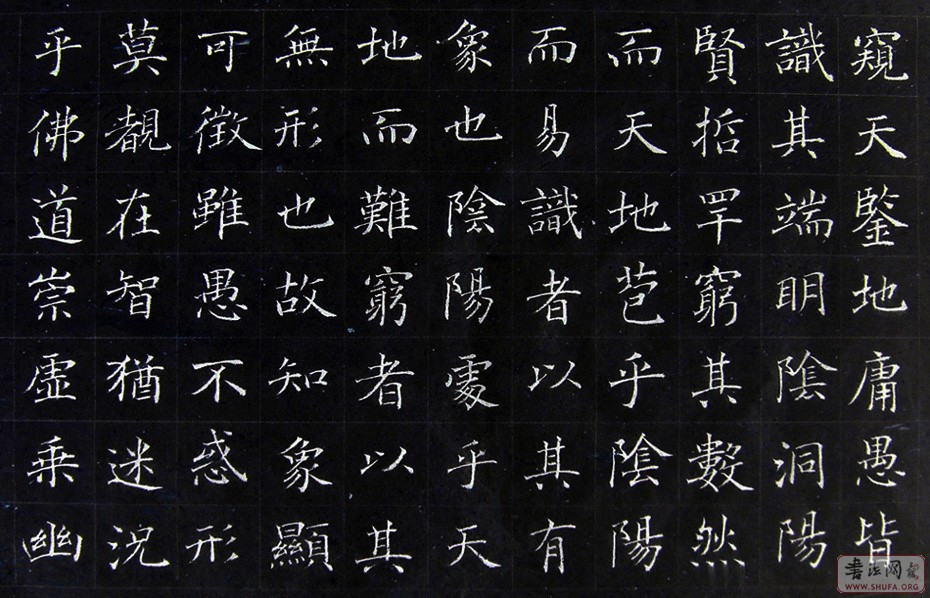 窺天鑒地庸愚皆
識其端明陰洞陽
賢哲罕窮其數然
而天地苞乎陰陽
而易識者以其有
象也陰陽處乎天
地而難窮者以其
無形也故知象顯
可徵雖愚不惑形
莫覩在智猶迷況
乎佛道崇虛乘幽
书法网
WWW.SHUFA.ORG